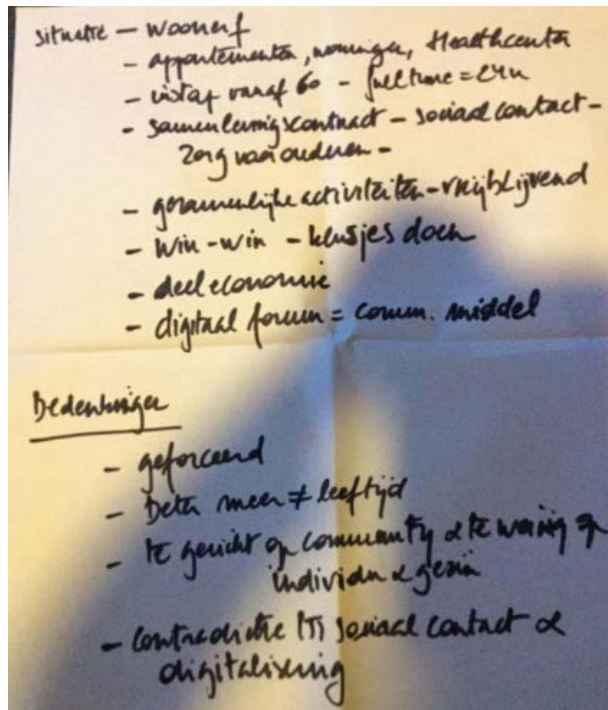 situatie – woonerf
– appartementen, woningen, Healthcenter
– instap vanaf 60 – fulltime = 24u
– samenlevingscontract – sociaal contact –
zorg voor ouderen –
– gezamenlijke activiteiten – vrijblijvend
– win-win – klusjes doen
– deeleconomie
– digitaal forum = comm. middel
Bedenkingen
– geforceerd
– Beter meer ≠ leeftijd
– te gericht op community & te weinig op
individu & gezin
– contradictie sociaal contact &
digitalisering